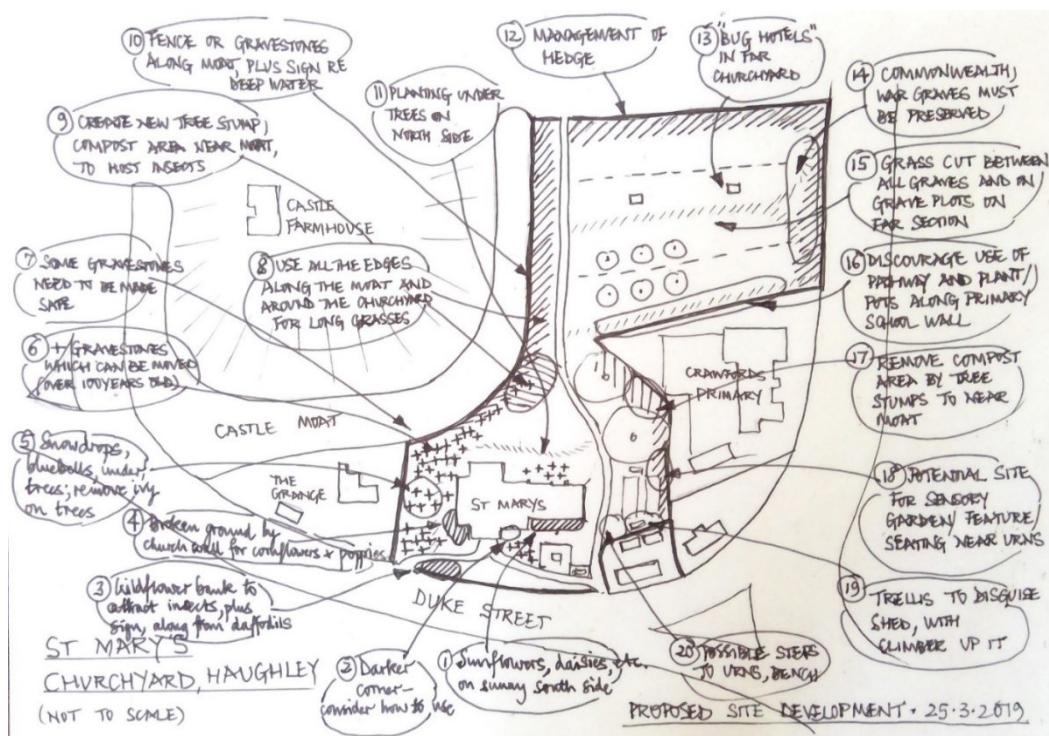 10 FENCE OR GRAVESTONES
ALONG MOAT, PLUS SIGN RE
DEEP WATER
12 MANAGEMENT OF
HEDGE
13 "BUG HOTELS"
IN FAR
CHURCHYARD
14 COMMONWEALTH,
WAR GRAVES MUST
BE PRESERVED
11 PLANTING UNDER
TREES ON
NORTH SIDE
9 CREATE NEW TREE STUMP,
COMPOST AREA NEAR MOAT,
TO HOST INSECTS
15 GRASS CUT BETWEEN
ALL GRAVES AND ON
GRAVE PLOTS ON
FAR SECTION
CASTLE
FARMHOUSE
7 SOME GRAVESTONES
NEED TO BE MADE
SAFE
8 USE ALL THE EDGES
ALONG THE MOAT AND
AROUND THE CHURCHYARD
FOR LONG GRASSES
16 DISCOURAGE USE OF
PATHWAY AND PLANT/
POTS ALONG PRIMARY
SCHOOL WALL
6 +/GRAVESTONES
WHICH CAN BE MOVED
(OVER 100 YEARS OLD)
CRAWFORDS
PRIMARY
17 REMOVE COMPOST
AREA BY TREE
STUMPS TO NEAR
MOAT
CASTLE MOAT
5 Snowdrops,
bluebells, under
trees; remove ivy
on trees
THE
GRANGE
ST MARYS
18 POTENTIAL SITE
FOR SENSORY
GARDEN/FEATURE,
SEATING NEAR URNS
4 Broken ground by
church wall for cornflowers + poppies
3 Wildflower bank to
attract insects, plus
sign, along from daffodils
DUKE STREET
19 TRELLIS TO DISGUISE
SHED, WITH
CLIMBER UP IT
2 Darker
corner -
consider how to use
1 Sunflowers, daisies, etc.
on sunny south side
20 POSSIBLE STEPS
TO URNS, BENCH
ST MARY'S
CHURCHYARD, HAUGHLEY
(NOT TO SCALE)
PROPOSED SITE DEVELOPMENT · 25·3·2019